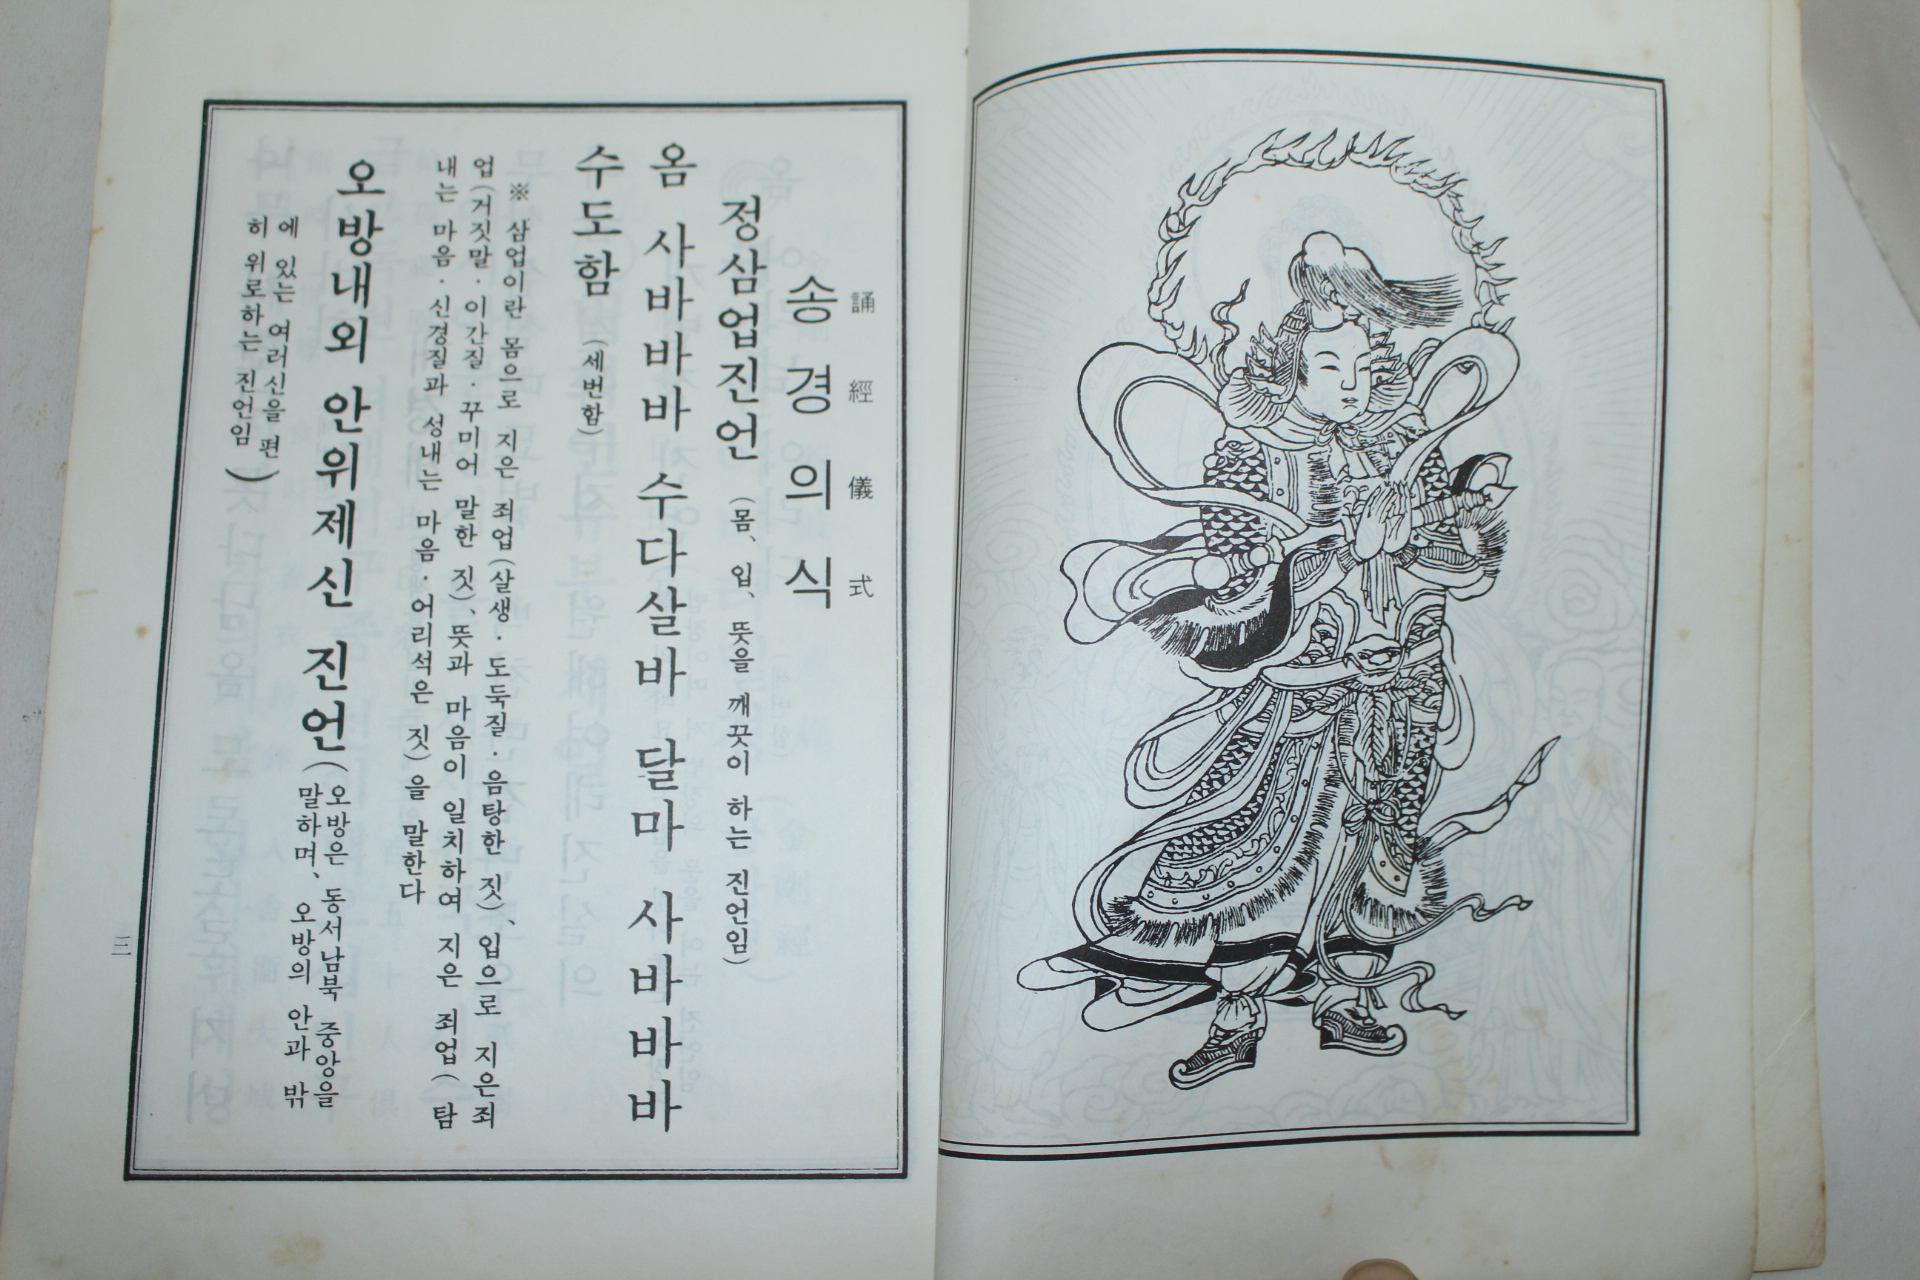 송경의식
誦經儀式
정삼업진언 (몸、입、뜻을 깨끗이 하는 진언임)
옴 사바바바 수다살바 달마 사바바바
수도함 (세번함)
※ 삼업이란 몸으로 지은 죄업(살생·도둑질·음탕한 짓)、입으로 지은죄
업(거짓말·이간질·꾸미어 말한 짓)、뜻과 마음이 일치하여 지은 죄업(탐
내는 마음·신경질과 성내는 마음·어리석은 짓)을 말한다
오방내외 안위제신 진언(오방은 동서남북 중앙을
말하며、오방의 안과 밖
에 있는 여러신을 편
히 위로하는 진언임)